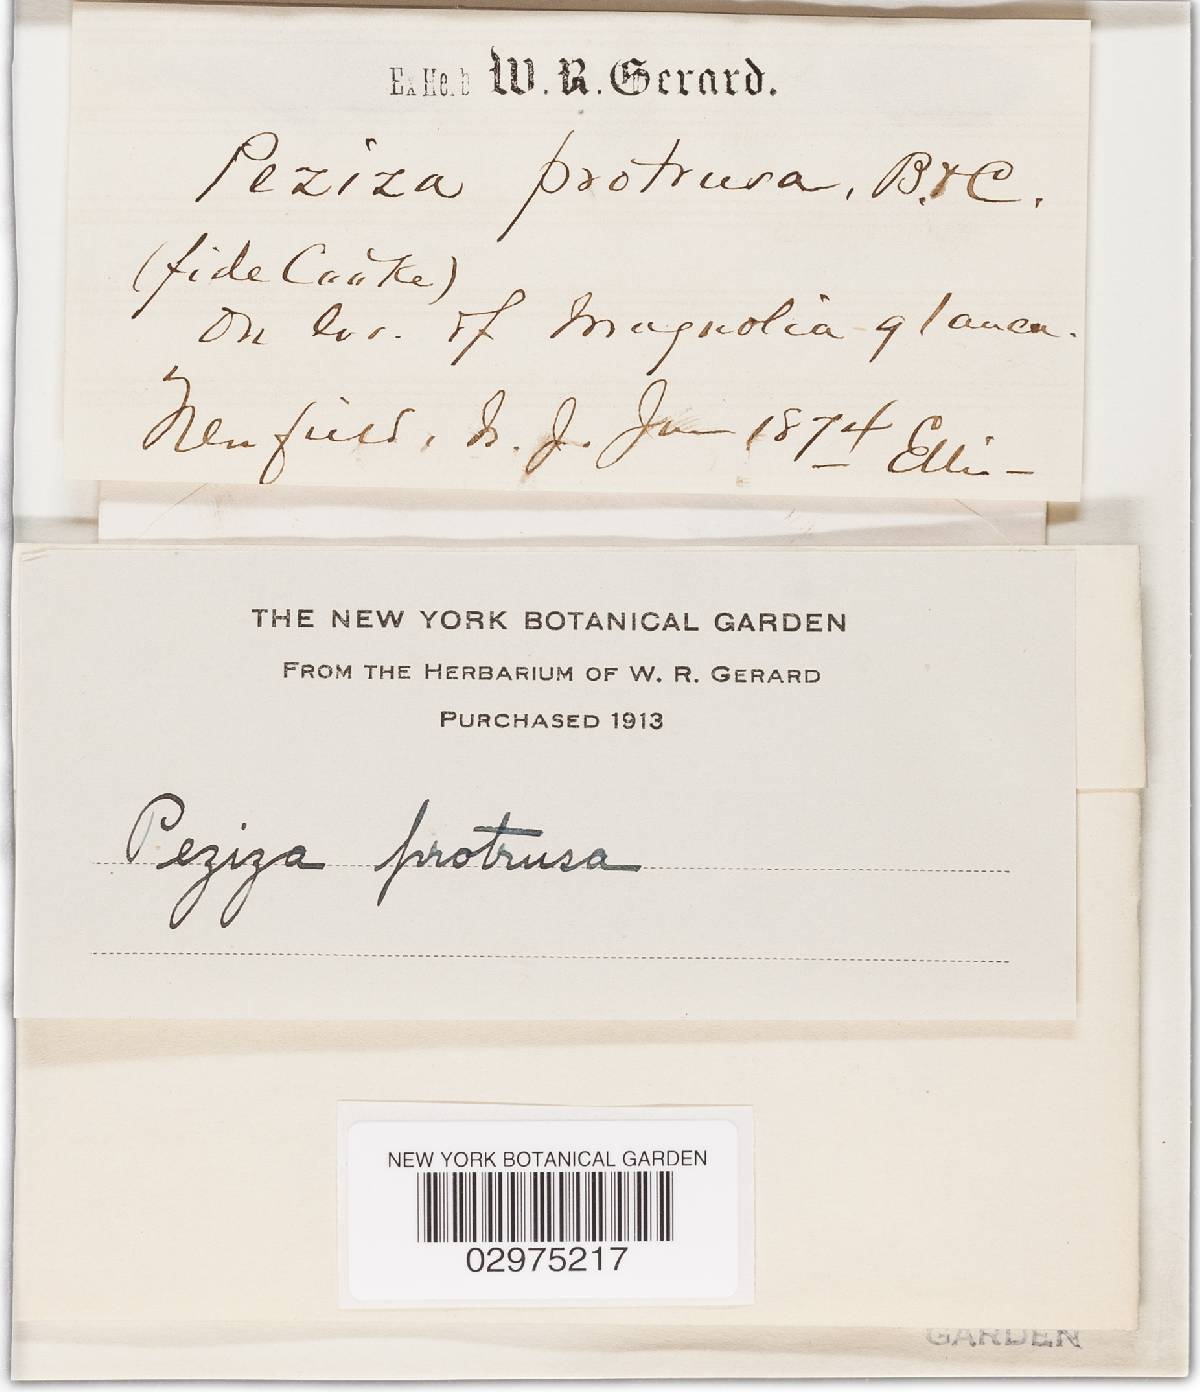 Ex Herb W. R. Gerard.
Peziza protrusa, B. & C.
(fide Cooke)
On lvs. of Magnolia glauca.
Newfield, N. J. Jan 1874 Ellis
THE NEW YORK BOTANICAL GARDEN
FROM THE HERBARIUM OF W. R. GERARD
PURCHASED 1913
Peziza protrusa
NEW YORK BOTANICAL GARDEN
02975217
GARDEN